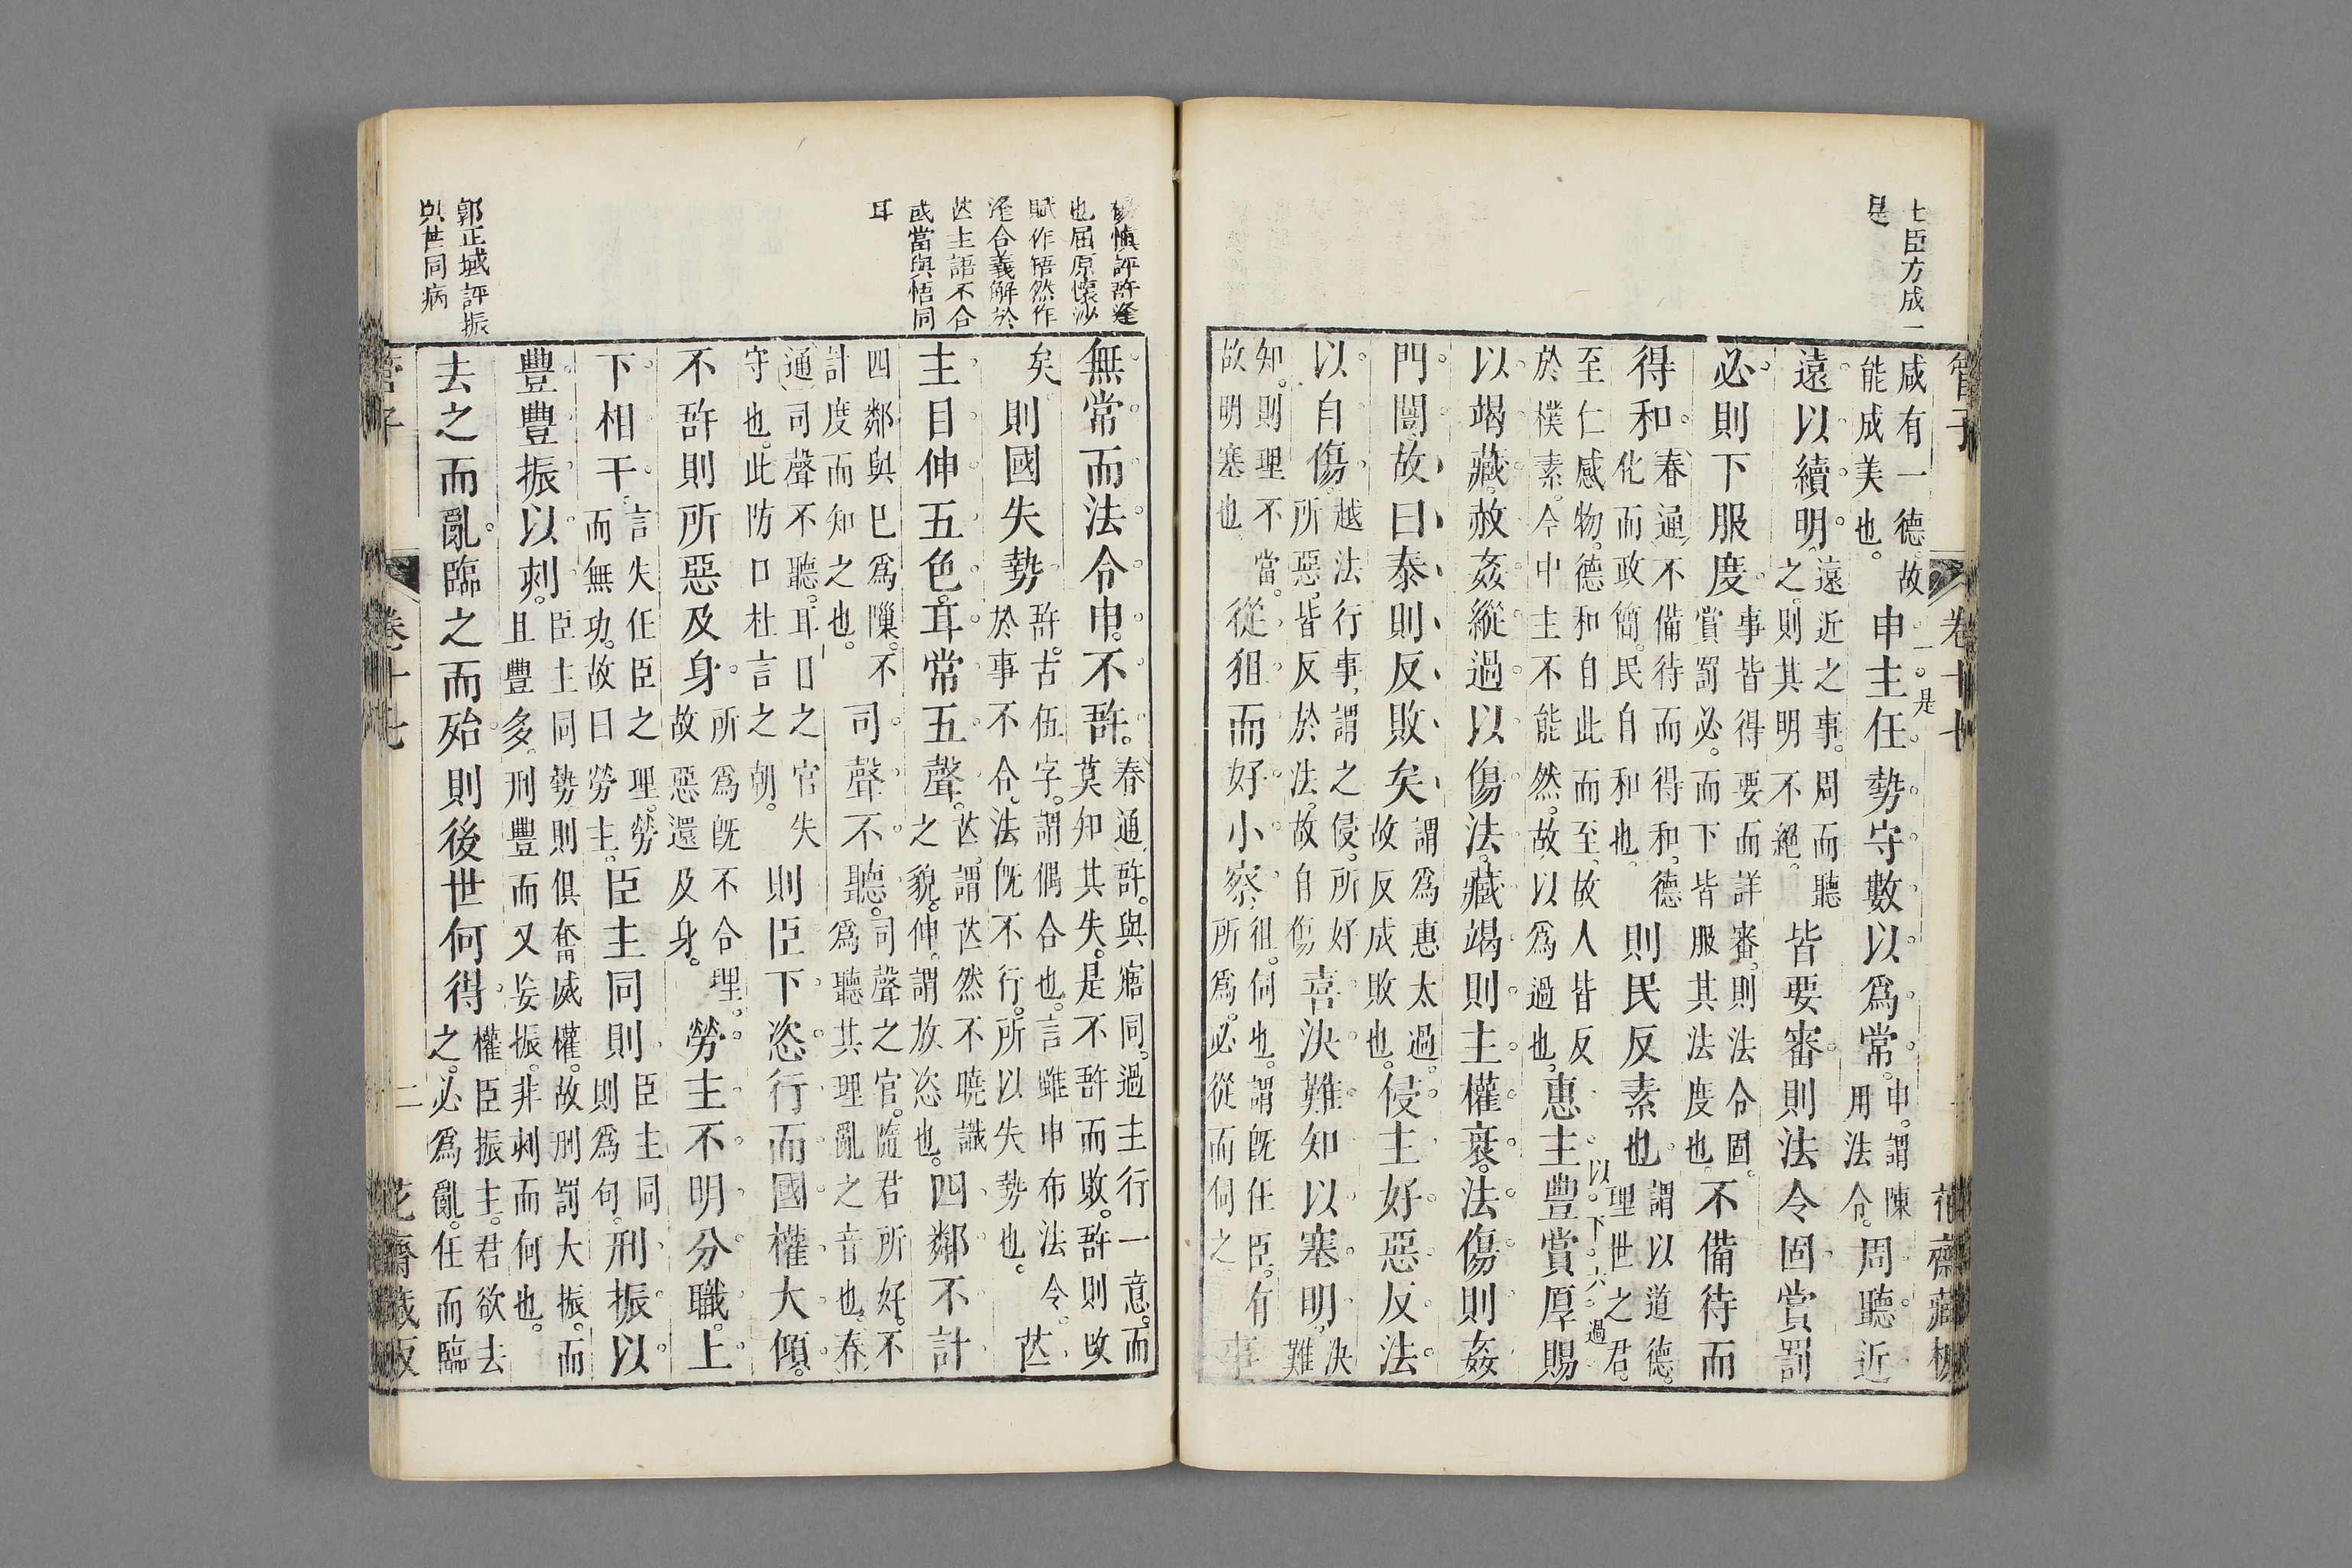 七臣方成一
是
管子 卷十七 花齋藏板
咸有一德。故
能成美也。
申主任勢守數以爲常。
申。謂陳
用法令。
周聽近
一是
遠以續明。
遠近之事。周而聽
之。則其明不絕。
皆要審則法令固賞罰
必則下服度。
事皆得要而詳審。則法令固。
賞罰必。而下皆服其法度也
不備待而
得和。
春通不備待而得和。德
化而政簡。民自和也。
則民反素也。
謂以道德。
理世之君。
至仁感物。德和自此而至。故人皆反
於樸素。今中主不能然。故以爲過也。
惠主豐賞厚賜
以下六過
以竭藏。赦姦縱過以傷法。藏竭則主權衰。法傷則姦
門闓。故曰泰則反敗矣
謂爲惠太過。
故反成敗也。
侵主好惡反法
以自傷。
越法行事。謂之侵。所好
所惡。皆反於法。故自傷
喜決難知以塞明。
決
難
知。則理不當。
故明塞也
從狙而好小察
狙。伺也。謂旣任臣。有
所爲。必從而伺之
事
楊愼評許逢
也屈原懷沙
賦作牾然作
逢合義解於
芒主語不合
或當與悟同
耳
無常而法令申。不䛑。
春通䛑。與寤同。過主行一意。而
莫知其失。是不䛑而敗。䛑則敗
矣
則國失勢
䛑。古伍字。謂偶合也。言雖申布法令。
於事不合。法旣不行。所以失勢也。
芒
主目伸五色。耳常五聲。
芒。謂芒然不曉識
之貌。伸。謂放恣也。
四鄰不計
四鄰與巳爲隟。不
計度而知之也。
司聲不聽。
司聲之官。隨君所好。不
爲聽其理亂之音也。春
通司聲不聽。耳目之官失
守也。此防口杜言之朝。
則臣下恣行而國權大傾。
不䛑則所惡及身。
所爲旣不合理。
故惡還及身。
勞主不明分職。上
下相干。
言失任臣之理。勞
而無功。故曰勞主。
臣主同則
臣主同
則爲句。
刑振以
豐豐振以刺。
臣主同勢。則俱奮威權。故刑罰大振。而
且豐多。刑豐而又妄振。非刺而何也。
去之而亂。臨之而殆。則後世何得。
權臣振主。君欲去
之。必爲亂。任而臨
郭正域評振
與世同病
管子 卷十七 二 花齋藏板